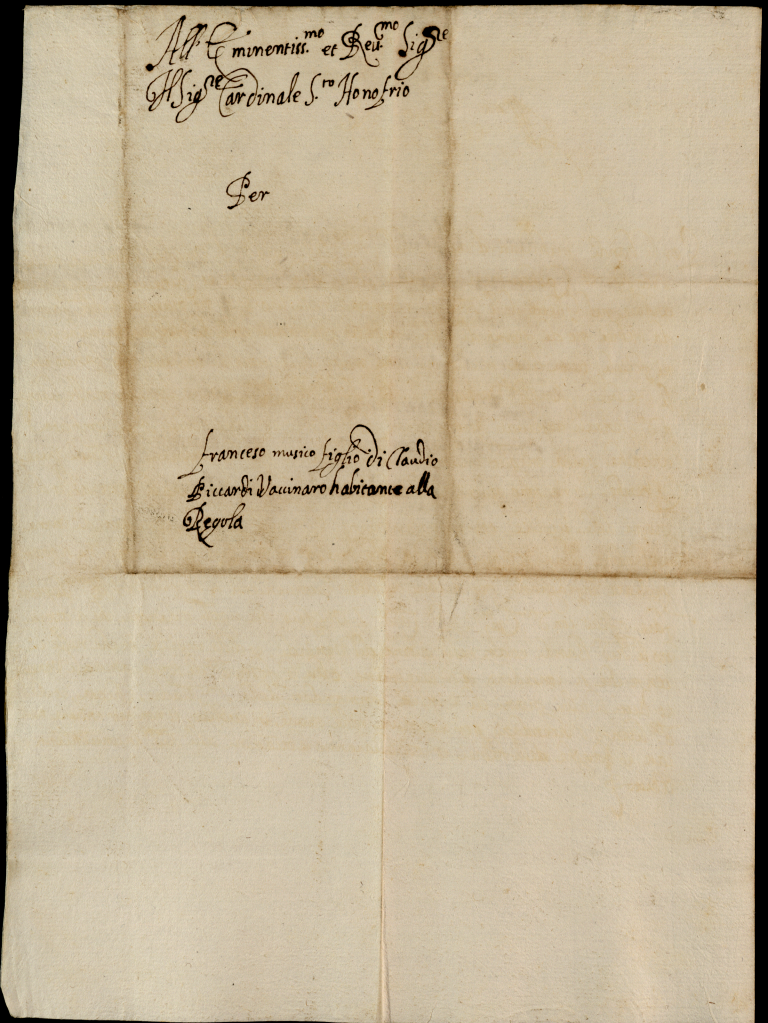 All' Eminentiss.mo et Reu.mo Sig.re
Il Sig.re Cardinale S.to Honofrio
Per
franceso musico figlio di Claudio
Riccardi Vaccinaro habitante alla
Regola